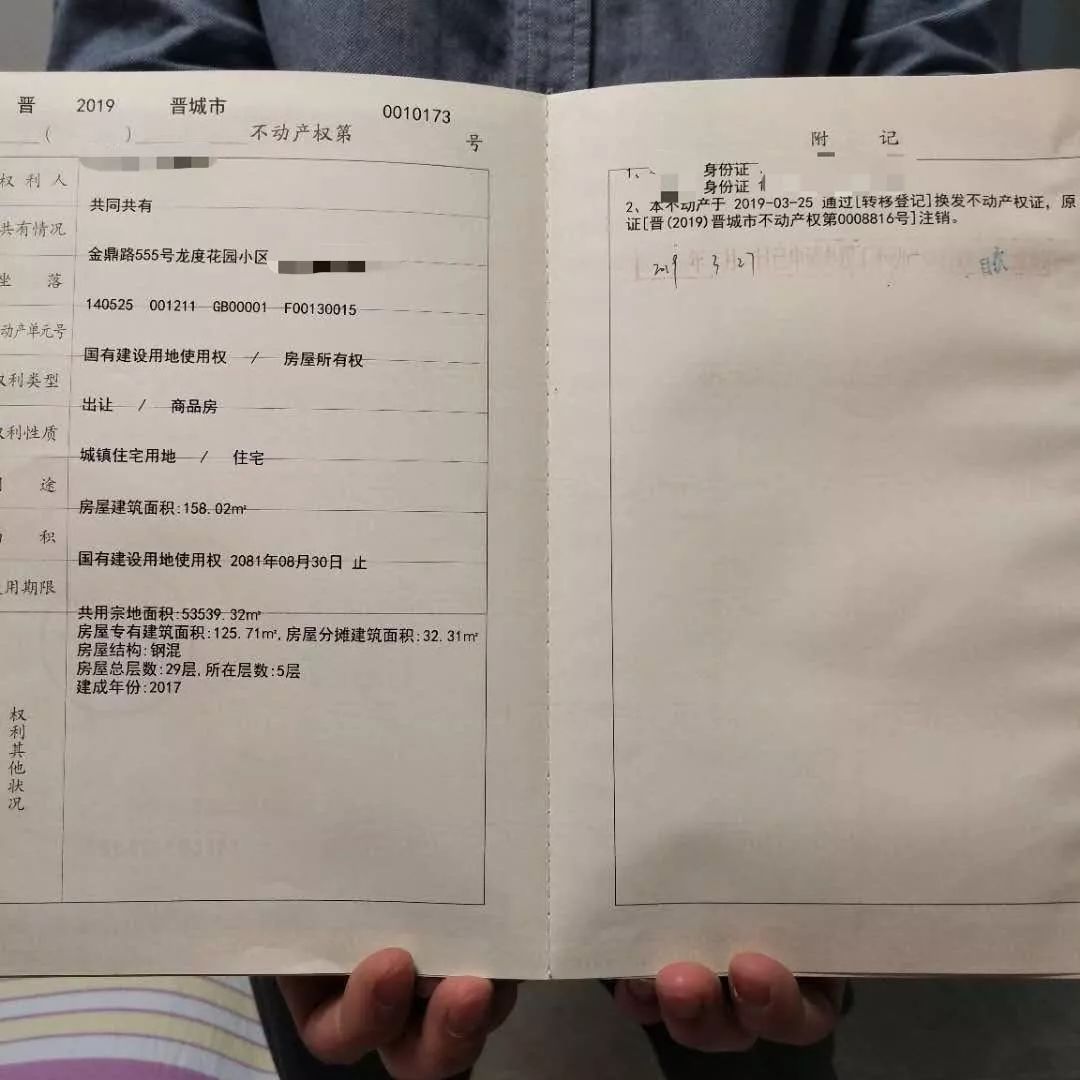 晋 2019 晋城市 0010173
( ) 不动产权第 号
权利人
共有情况 共同共有
坐 落 金鼎路555号龙度花园小区
动产单元号 140525 001211 GB00001 F00130015
权利类型 国有建设用地使用权 / 房屋所有权
权利性质 出让 / 商品房
途 城镇住宅用地 / 住宅
积 房屋建筑面积:158.02㎡
用期限 国有建设用地使用权 2081年08月30日 止
权利其他状况
共用宗地面积:53539.32㎡
房屋专有建筑面积:125.71㎡,房屋分摊建筑面积:32.31㎡
房屋结构:钢混
房屋总层数:29层,所在层数:5层
建成年份:2017
附 记
1、 身份证
身份证
2、本不动产于 2019-03-25 通过[转移登记]换发不动产权证，原
证[晋(2019)晋城市不动产权第0008816号]注销。
2019 3 27